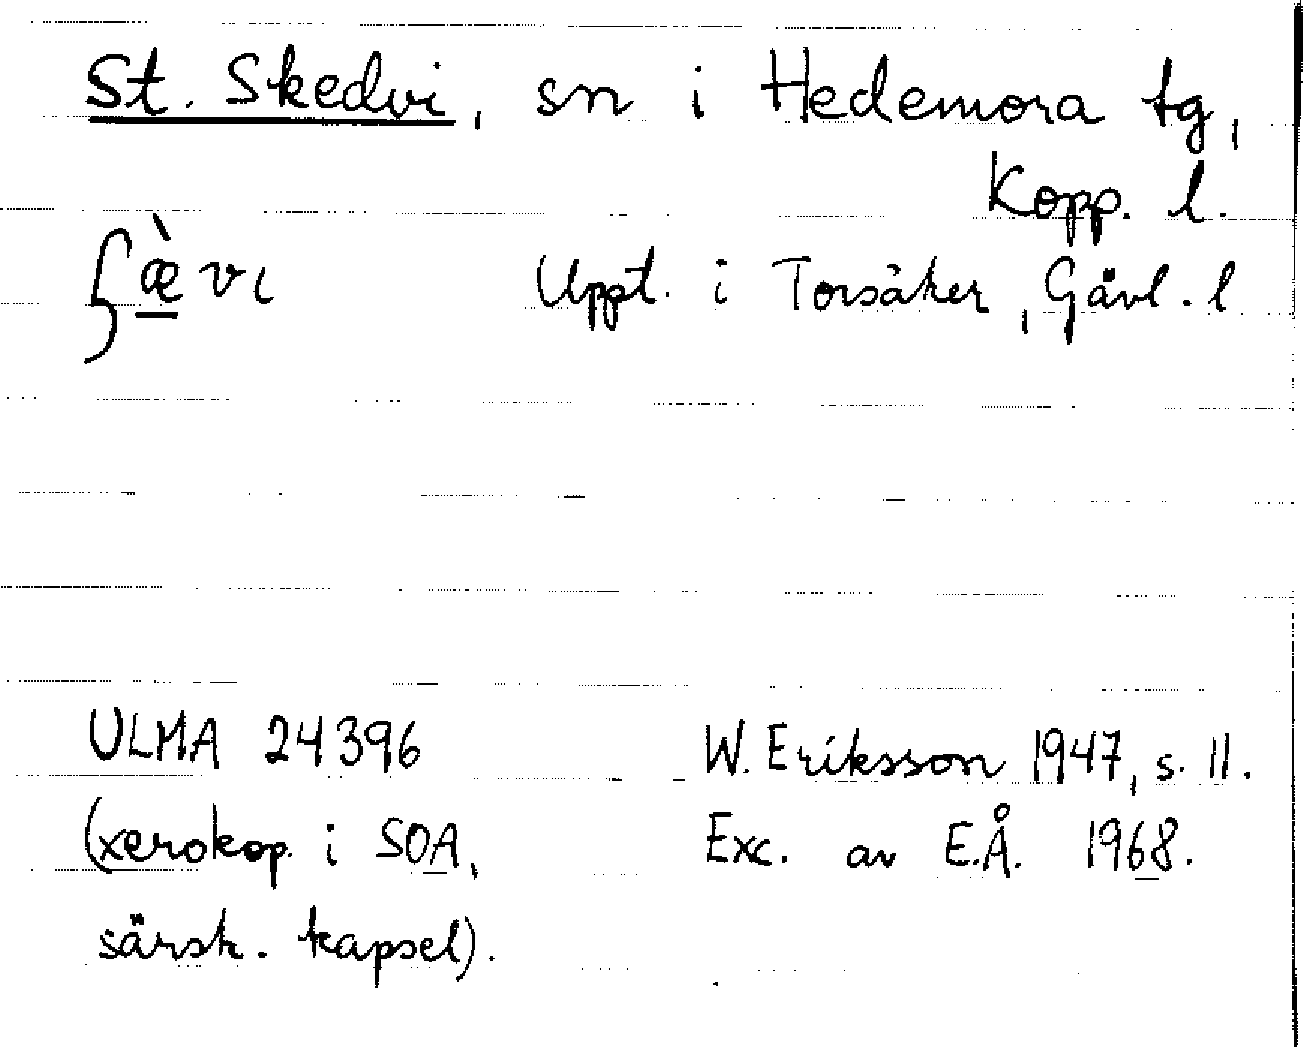 St. Skedvi, sn i Hedemora tg,
Kopp. l.
ʃæ̠̀vɩ Uppt. i Torsåker, Gävl. l
ULMA 24396 W. Eriksson 1947, s. 11.
(xerokop. i SOA, Exc. av E.Å. 1968.
särsk. kapsel).